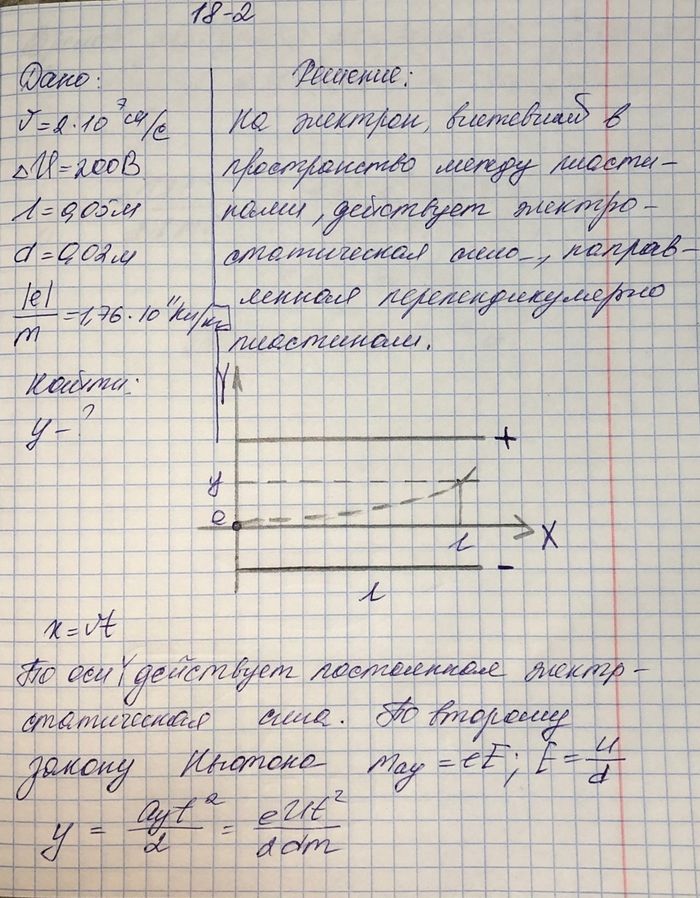 18-2
Дано:
v = 2·10⁷ см/с
ΔU = 200В
l = 0,05м
d = 0,02м
|e|/m = 1,76·10¹¹ Кл/кг
Найти:
y - ?
Решение:
На электрон, влетевший в
пространство между пласти-
нами, действует электро-
статическая сила, направ-
ленная перпендикулярно
пластинам.
Y
+
y
e
l
X
-
l
x = vt
По оси Y действует постоянная электр-
статическая сила. По второму
закону Ньютона ma_y = eE; E = U/d
y = a_y t²/2 = eUt²/2dm